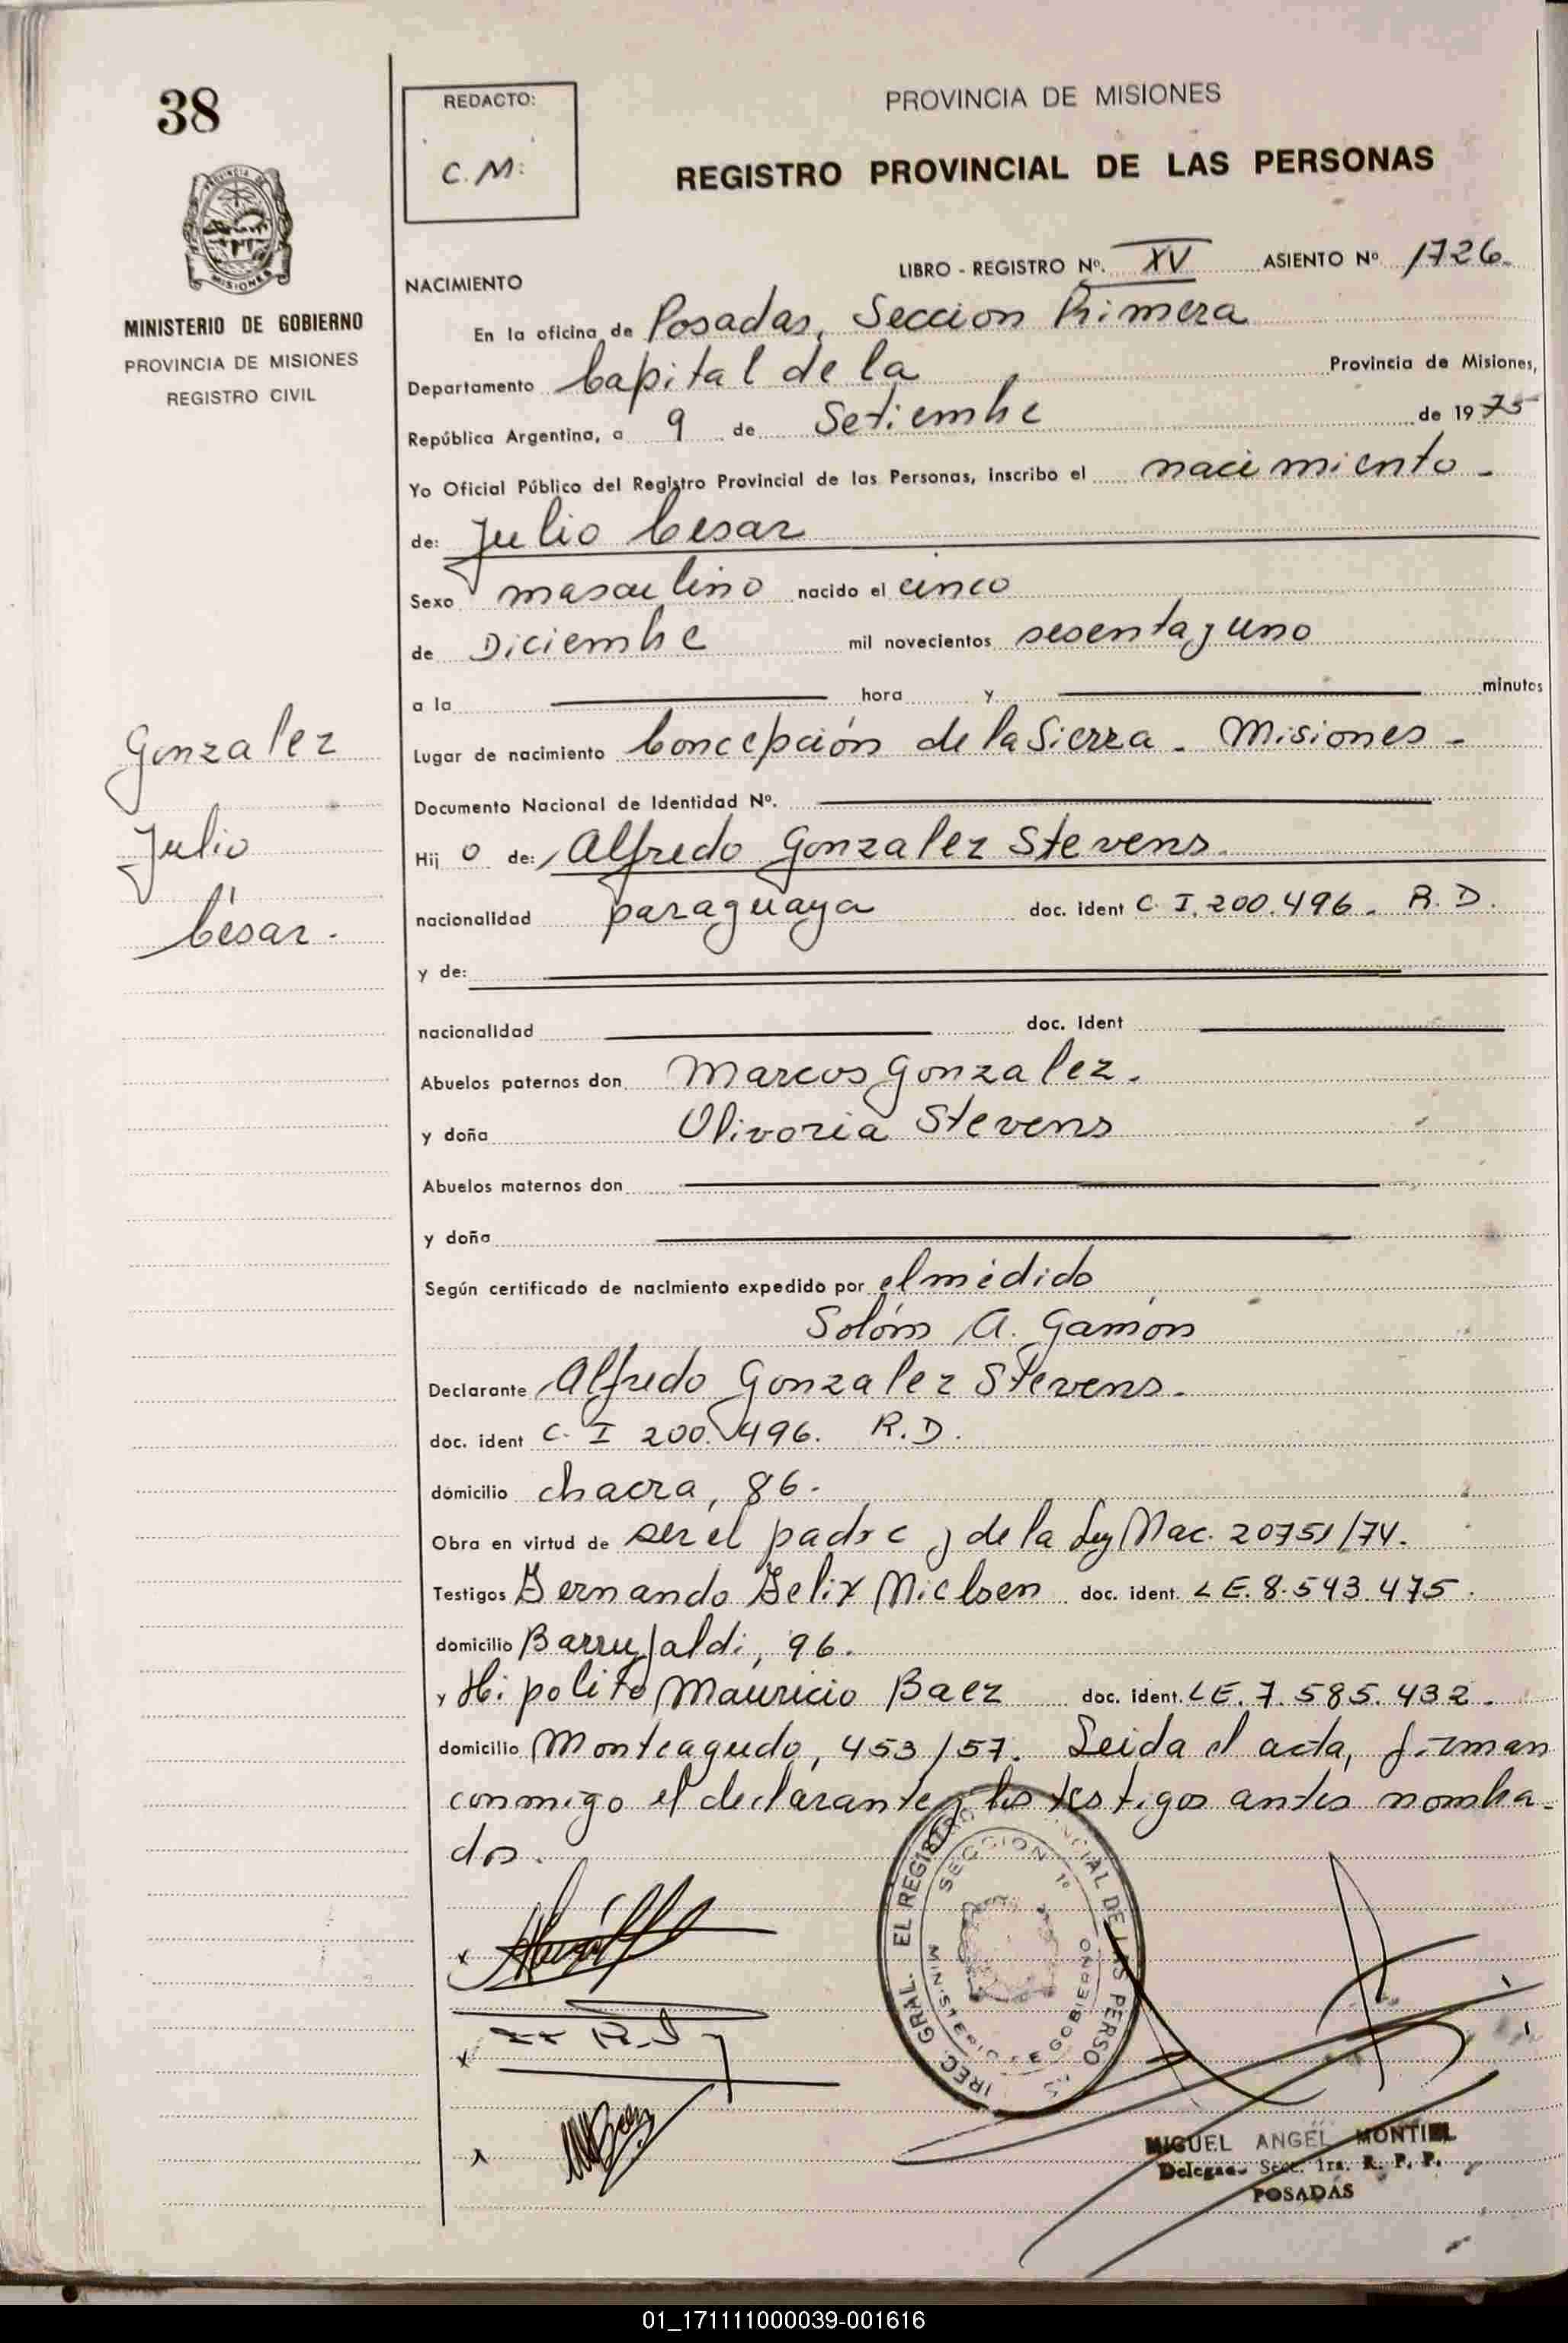 38
REDACTO:
C.M:
PROVINCIA DE MISIONES
REGISTRO PROVINCIAL DE LAS PERSONAS
PROVINCIA DE
MISIONES
MINISTERIO DE GOBIERNO
PROVINCIA DE MISIONES
REGISTRO CIVIL
LIBRO - REGISTRO Nº. XV ASIENTO Nº 1726.
NACIMIENTO
En la oficina de Posadas, Seccion Primera
Departamento Capital de la Provincia de Misiones,
República Argentina, a 9 de Setiembre de 1975
Yo Oficial Público del Registro Provincial de las Personas, inscribo el nacimiento -
de: Julio Cesar
Sexo masculino nacido el cinco
de Diciembre mil novecientos sesenta y uno
a la hora y minutos
Lugar de nacimiento Concepción de la Sierra - Misiones -
Documento Nacional de Identidad Nº.
Gonzalez
Julio
César.
Hij o de: Alfredo Gonzalez Stevens
nacionalidad paraguaya doc. ident C.I. 200.496. R.D.
y de:
nacionalidad doc. ident
Abuelos paternos don Marcos Gonzalez.
y doña Olivoria Stevens
Abuelos maternos don
y doña
Según certificado de nacimiento expedido por el médido
Solóm A. Gamón
Declarante Alfredo Gonzalez Stevens.
doc. ident C.I 200.496. R.D.
domicilio chacra, 86.
Obra en virtud de ser el padre y de la Ley Nac. 20751/74.
Testigos Fernando Felix Nielsen doc. ident. LE. 8.543.475.
domicilio Barrufaldi, 96.
y Hipolito Mauricio Baez doc. ident. LE. 7.585.432.
domicilio Monteagudo, 453/57. Leida el acta, firman
conmigo el declarante y los testigos antes nombra-
dos.
SECCION 1º
MINISTERIO DE GOBIERNO
MIGUEL ANGEL MONTIEL
Secc. 1ra. R. P. P.
POSADAS
01_171111000039-001616